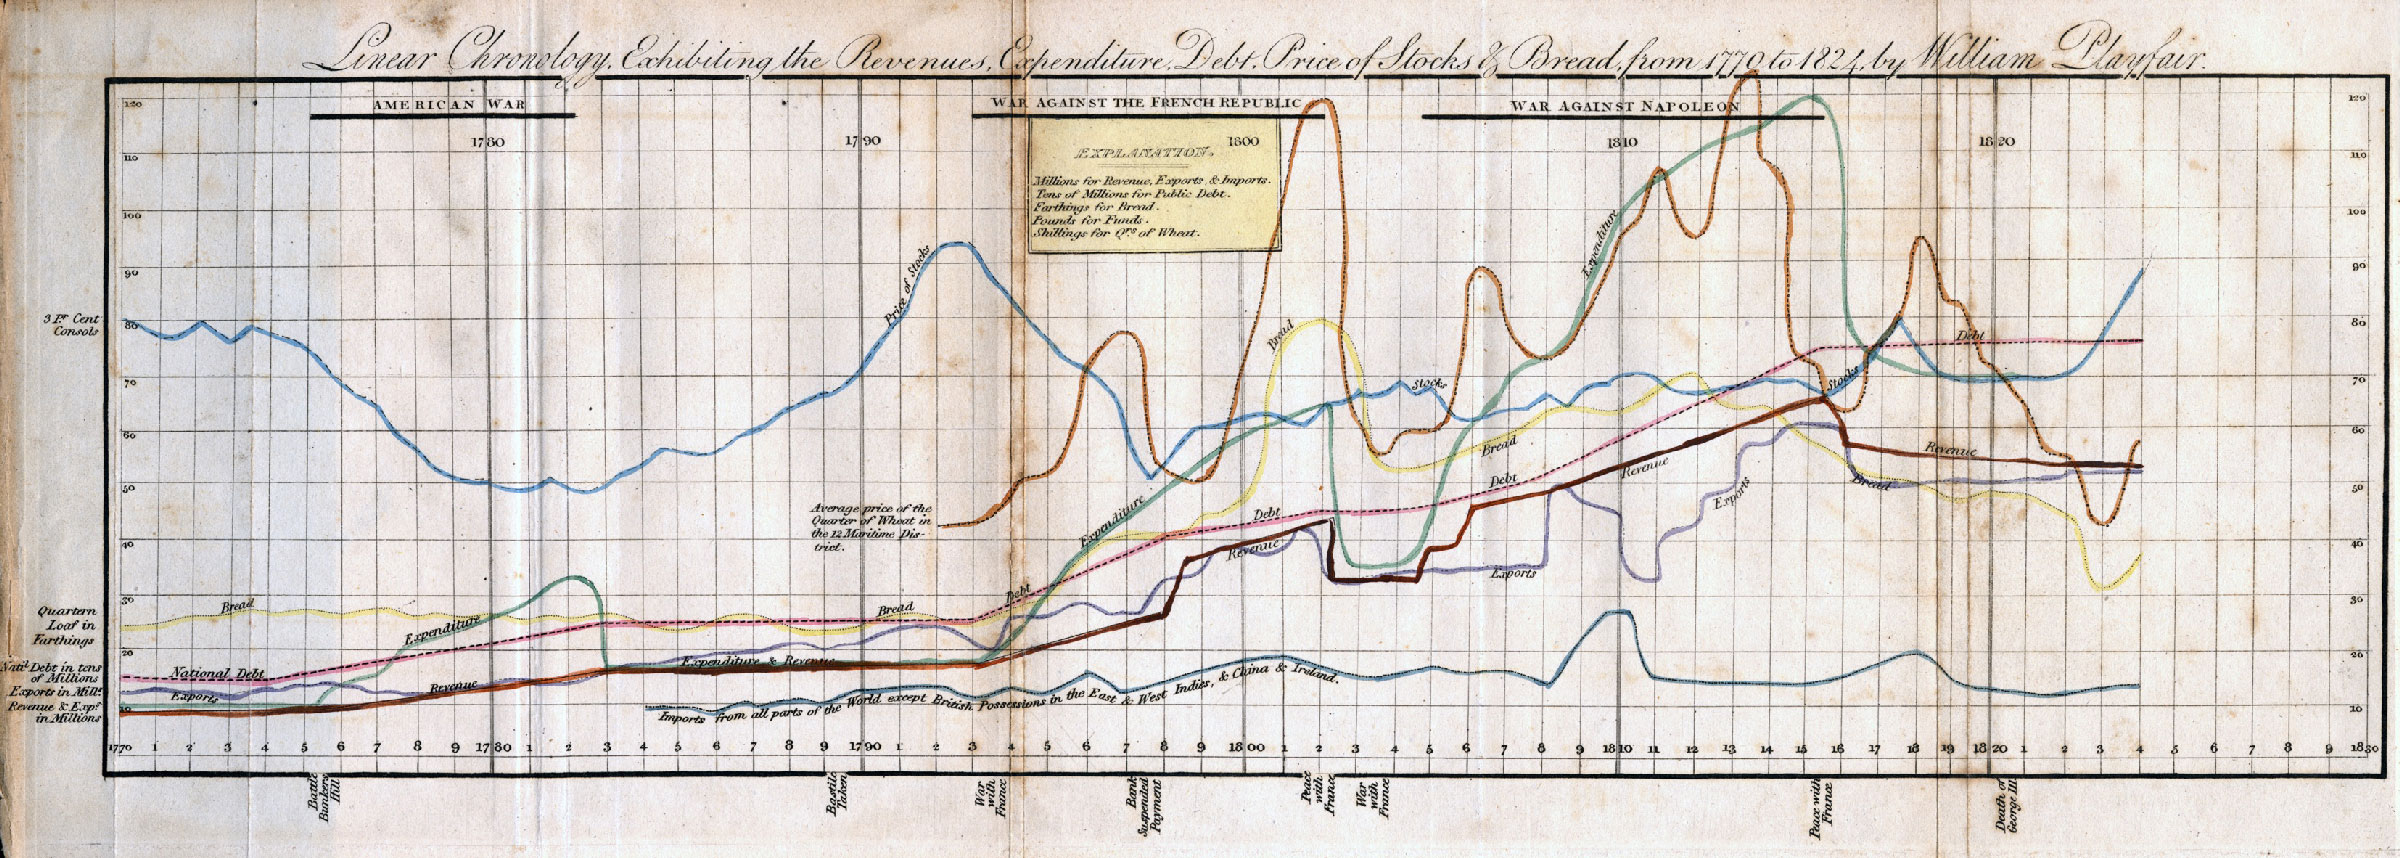 Linear Chronology, Exhibiting the Revenues, Expenditure, Debt, Price of Stocks & Bread, from 1770 to 1824, by William Playfair.
AMERICAN WAR
WAR AGAINST THE FRENCH REPUBLIC
WAR AGAINST NAPOLEON
1780
1790
1800
1810
1820
EXPLANATION.
Millions for Revenue, Exports, & Imports.
Tens of Millions for Public Debt.
Farthings for Bread.
Pounds for Funds.
Shillings for Qrs of Wheat.
120
110
100
90
80
70
60
50
40
30
20
10
120
110
100
90
80
70
60
50
40
30
20
10
3 Pr Cent
Consols
Quartern
Loaf in
Farthings
Natl Debt in tens
of Millions
Exports in Mills
Revenue & Expe
in Millions
Price of Stocks
Bread
Expenditure
National Debt
Exports
Revenue
Average price of the
Quarter of Wheat in
the 12 Maritime Dis-
trict.
Bread
Expenditure & Revenue
Imports from all parts of the World except British Possessions in the East & West Indies, & China & Ireland.
Debt
Expenditure
Bread
Debt
Revenue
Stocks
Bread
Debt
Exports
Expenditure
Revenue
Exports
Stocks
Debt
Revenue
Bread
1770 1 2 3 4 5 6 7 8 9 1780 1 2 3 4 5 6 7 8 9 1790 1 2 3 4 5 6 7 8 9 1800 1 2 3 4 5 6 7 8 9 1810 11 12 13 14 15 16 17 18 19 1820 1 2 3 4 5 6 7 8 9 1830
Battle
Bunkers
Hill
Bastile
Taken
War
with
France
Bank
Suspended
Payment
Peace
with
France
War
with
France
Peace with
France
Death of
George III